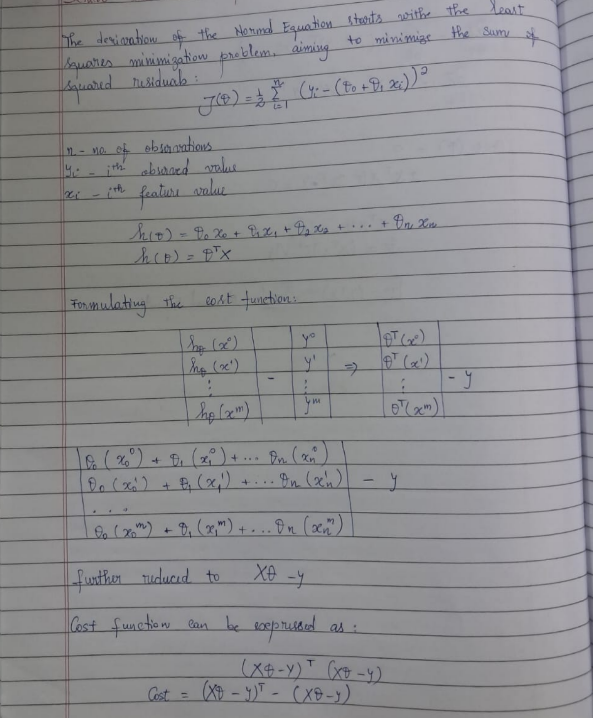 The derivation of the Normal Equation starts withe the least
squares minimization problem, aiming to minimize the sum of
squared residuals:
J(θ) = 1/2 Σ_{i=1}^{n} (yi - (θ0 + θ1 xi))²
n - no. of observations
yi - iᵗʰ observed value
xi - iᵗʰ feature value
h(θ) = θ0 x0 + θ1 x1 + θ2 x2 + .... + θn xn
h(θ) = θᵀX
Formulating the cost function:
| hθ (x⁰) | | y⁰ | | θᵀ(x⁰) |
| hθ (x¹) | | y¹ | | θᵀ(x¹) |
| ⋮ | - | ⋮ | ⇒ | ⋮ | - y
| hθ (xᵐ) | | yᵐ | | θᵀ(xᵐ) |
| θ0 (x0⁰) + θ1 (x1⁰) + ... θn (xn⁰) |
| θ0 (x0¹) + θ1 (x1¹) + ... θn (xn¹) | - y
| ... |
| θ0 (x0ᵐ) + θ1 (x1ᵐ) + ... θn (xnᵐ) |
further reduced to Xθ - y
Cost function can be expressed as:
(Xθ - y)ᵀ (Xθ - y)
Cost = (Xθ - y)ᵀ - (Xθ - y)